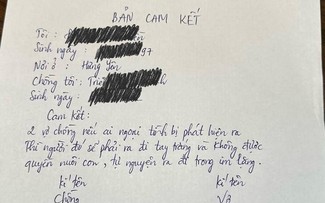 BẢN CAM KẾT
Tôi :
Sinh ngày : 97
Nơi ở : Hưng Yên
Chồng tôi :
Sinh ngày :
Cam kết :
2 vợ chồng nếu ai ngoại tình bị phát hiện ra
Thì người đó sẽ phải ra đi tay trắng và không được
quyền nuôi con , tự nguyện ra đi trong im lặng.
kí tên kí tên
Chồng Vợ